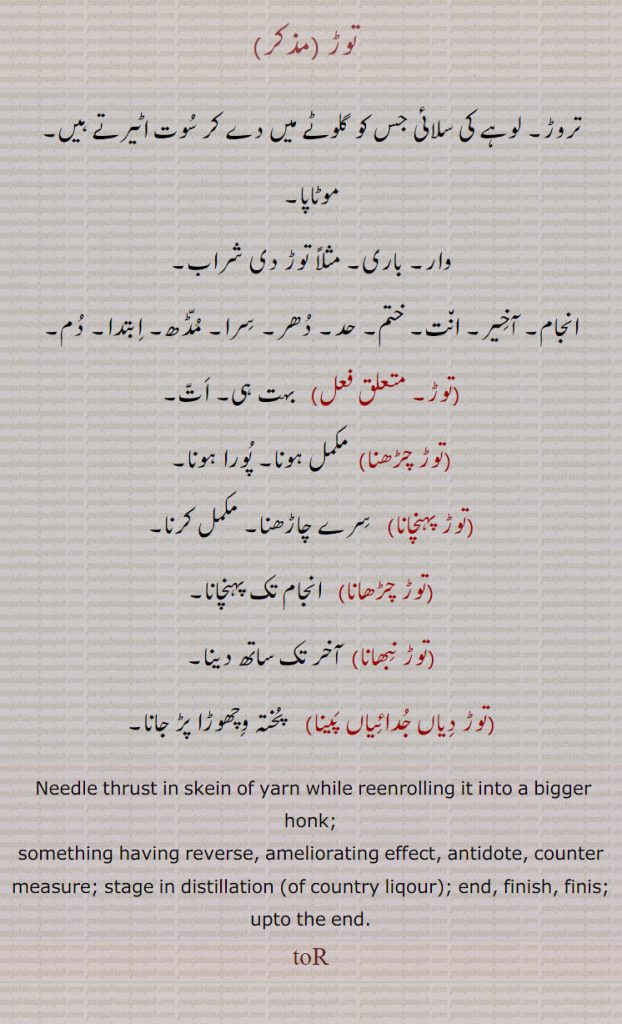 توڑ (مذکر)
تروڑ۔ لوہے کی سلائی جس کو گلوٹے میں دے کر سُوت اٹیرتے ہیں۔
موٹاپا۔
وار۔ باری۔ مثلاً توڑ دی شراب۔
انجام۔ آخِیر۔ انّت۔ ختم۔ حد۔ دُھر۔ سِرا۔ مُڈّھ۔ اِبتدا۔ دُم۔
(توڑ۔ متعلق فعل) بہت ہی۔ اَتّ۔
(توڑ چڑھنا) مکمل ہونا۔ پُورا ہونا۔
(توڑ پہنچانا) سِرے چاڑھنا۔ مکمل کرنا۔
(توڑ چڑھانا) انجام تک پہنچانا۔
(توڑ نِبھانا) آخر تک ساتھ دینا۔
(توڑ دِیاں جُدائِیاں پَینا) پُختہ وِچھوڑا پڑ جانا۔
Needle thrust in skein of yarn while reenrolling it into a bigger
honk;
something having reverse, ameliorating effect, antidote, counter
measure; stage in distillation (of country liqour); end, finish, finis;
upto the end.
toR